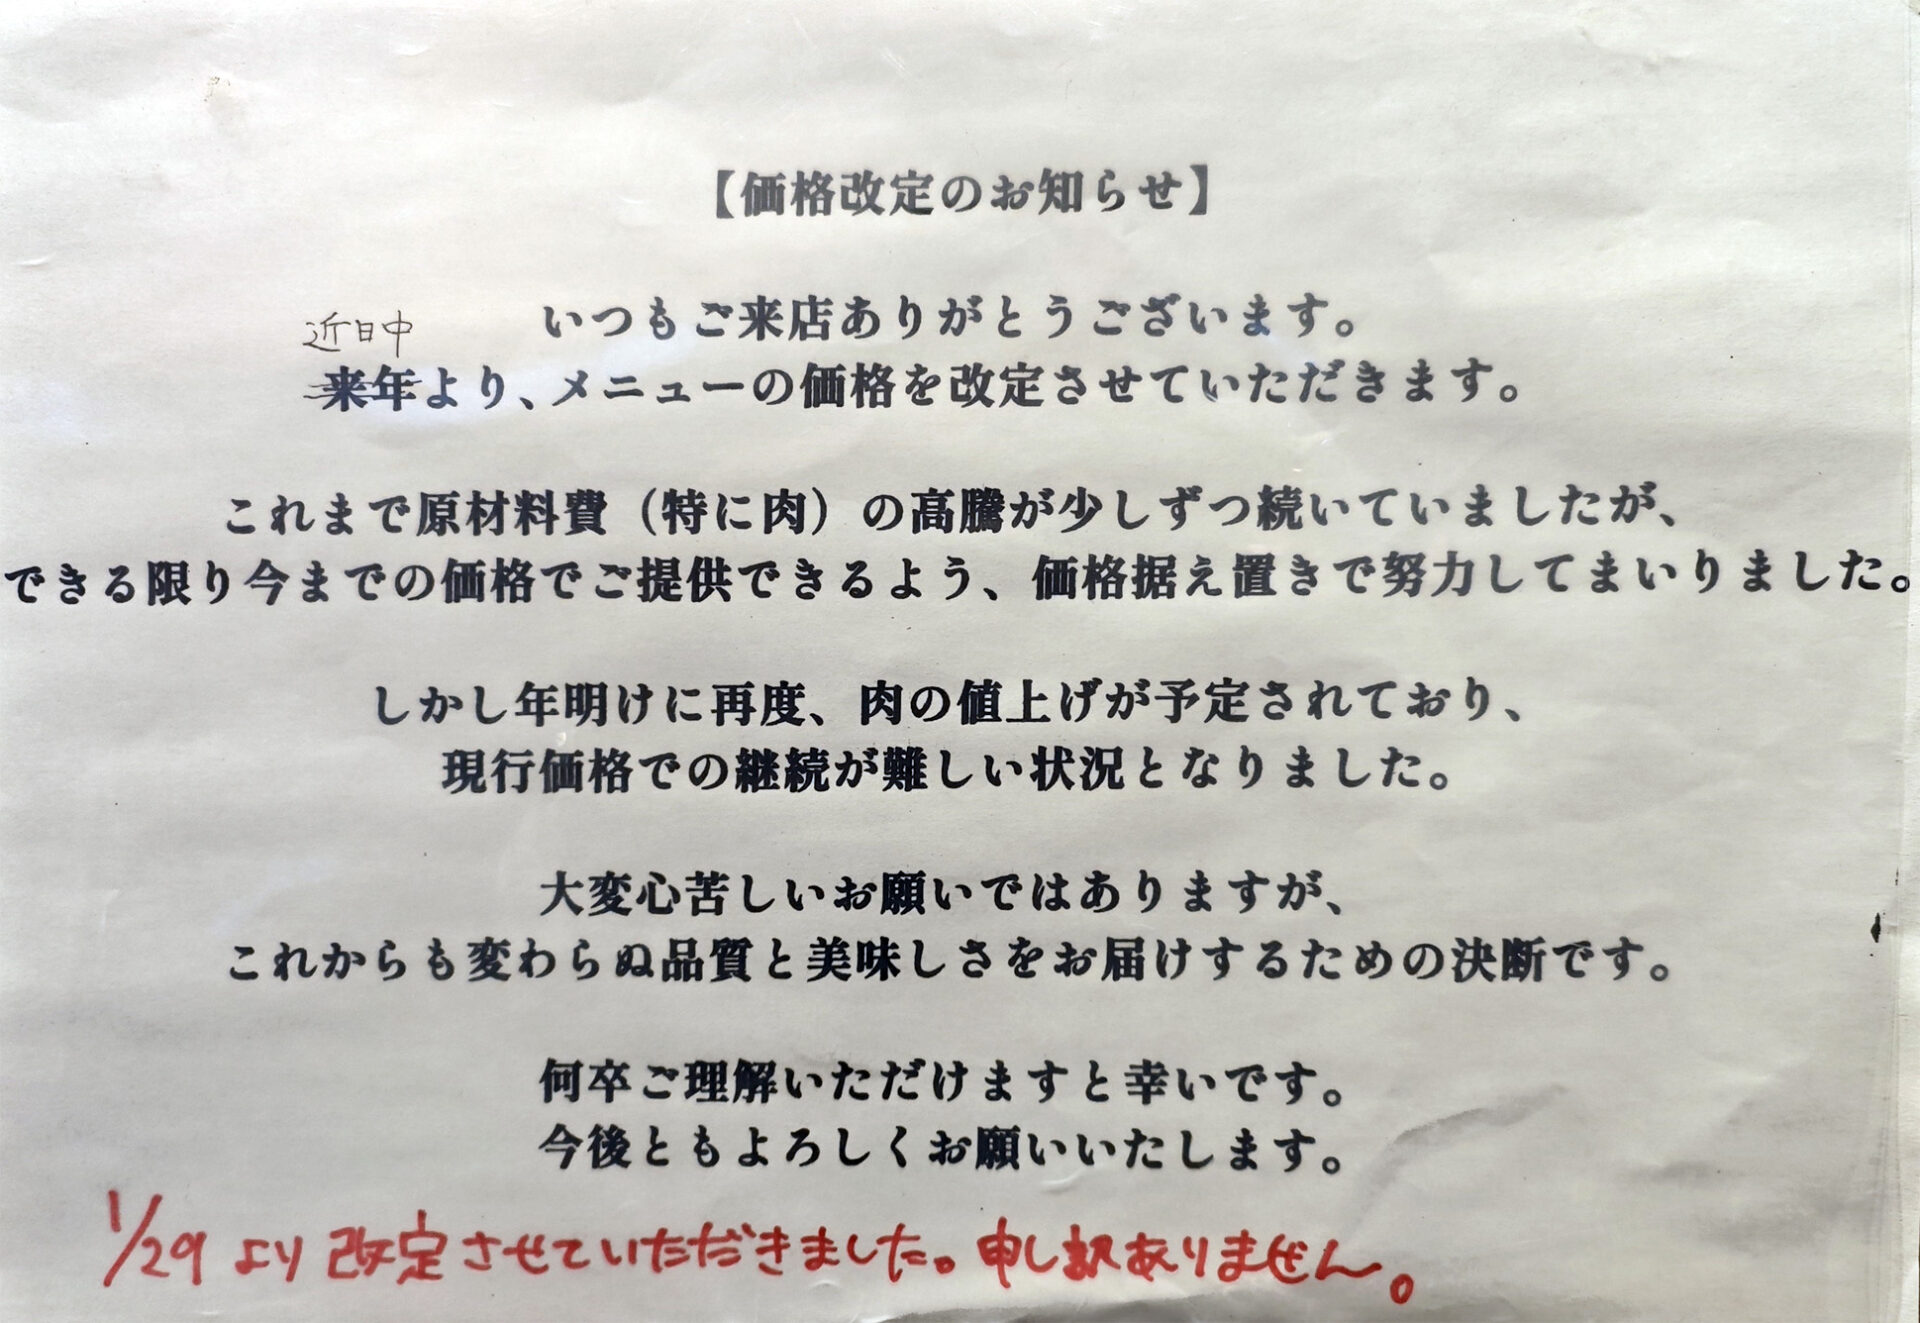 【価格改定のお知らせ】
いつもご来店ありがとうございます。
近日中
来年より、メニューの価格を改定させていただきます。
これまで原材料費（特に肉）の高騰が少しずつ続いていましたが、
できる限り今までの価格でご提供できるよう、価格据え置きで努力してまいりました。
しかし年明けに再度、肉の値上げが予定されており、
現行価格での継続が難しい状況となりました。
大変心苦しいお願いではありますが、
これからも変わらぬ品質と美味しさをお届けするための決断です。
何卒ご理解いただけますと幸いです。
今後ともよろしくお願いいたします。
1/29より改定させていただきました。申し訳ありません。